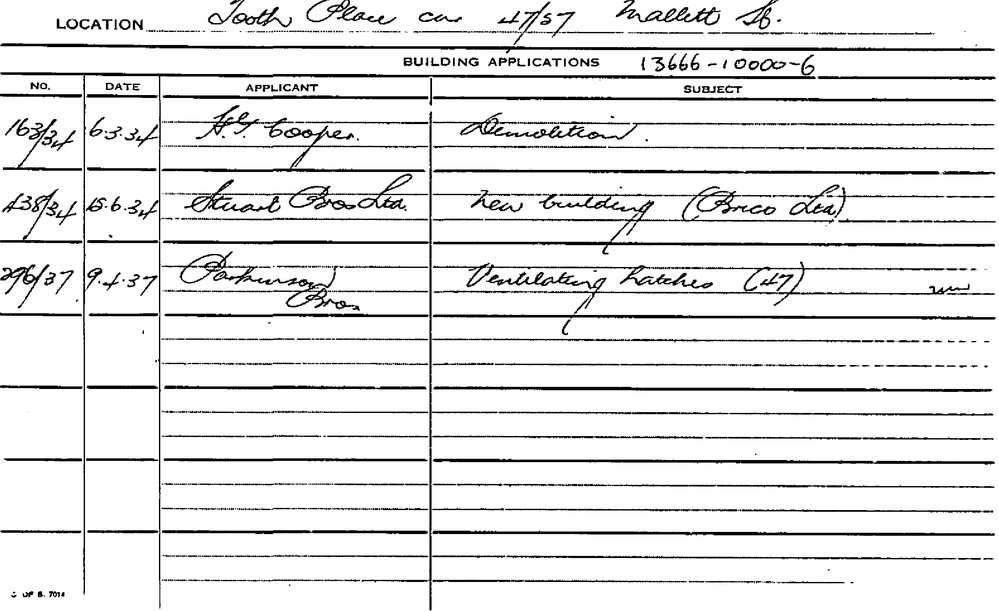 LOCATION Tooth Place cnr 47/57 Mallett St.
BUILDING APPLICATIONS 13666-10000-6
NO. DATE APPLICANT SUBJECT
163/34 6.3.34 H.T. Cooper. Demolition.
438/34 15.6.34 Stuart Bros Ltd. New building (Brico Ltd)
296/37 9.4.37 Parkinson Ventilating hatches (47)
Bros.
C OF S. 7014